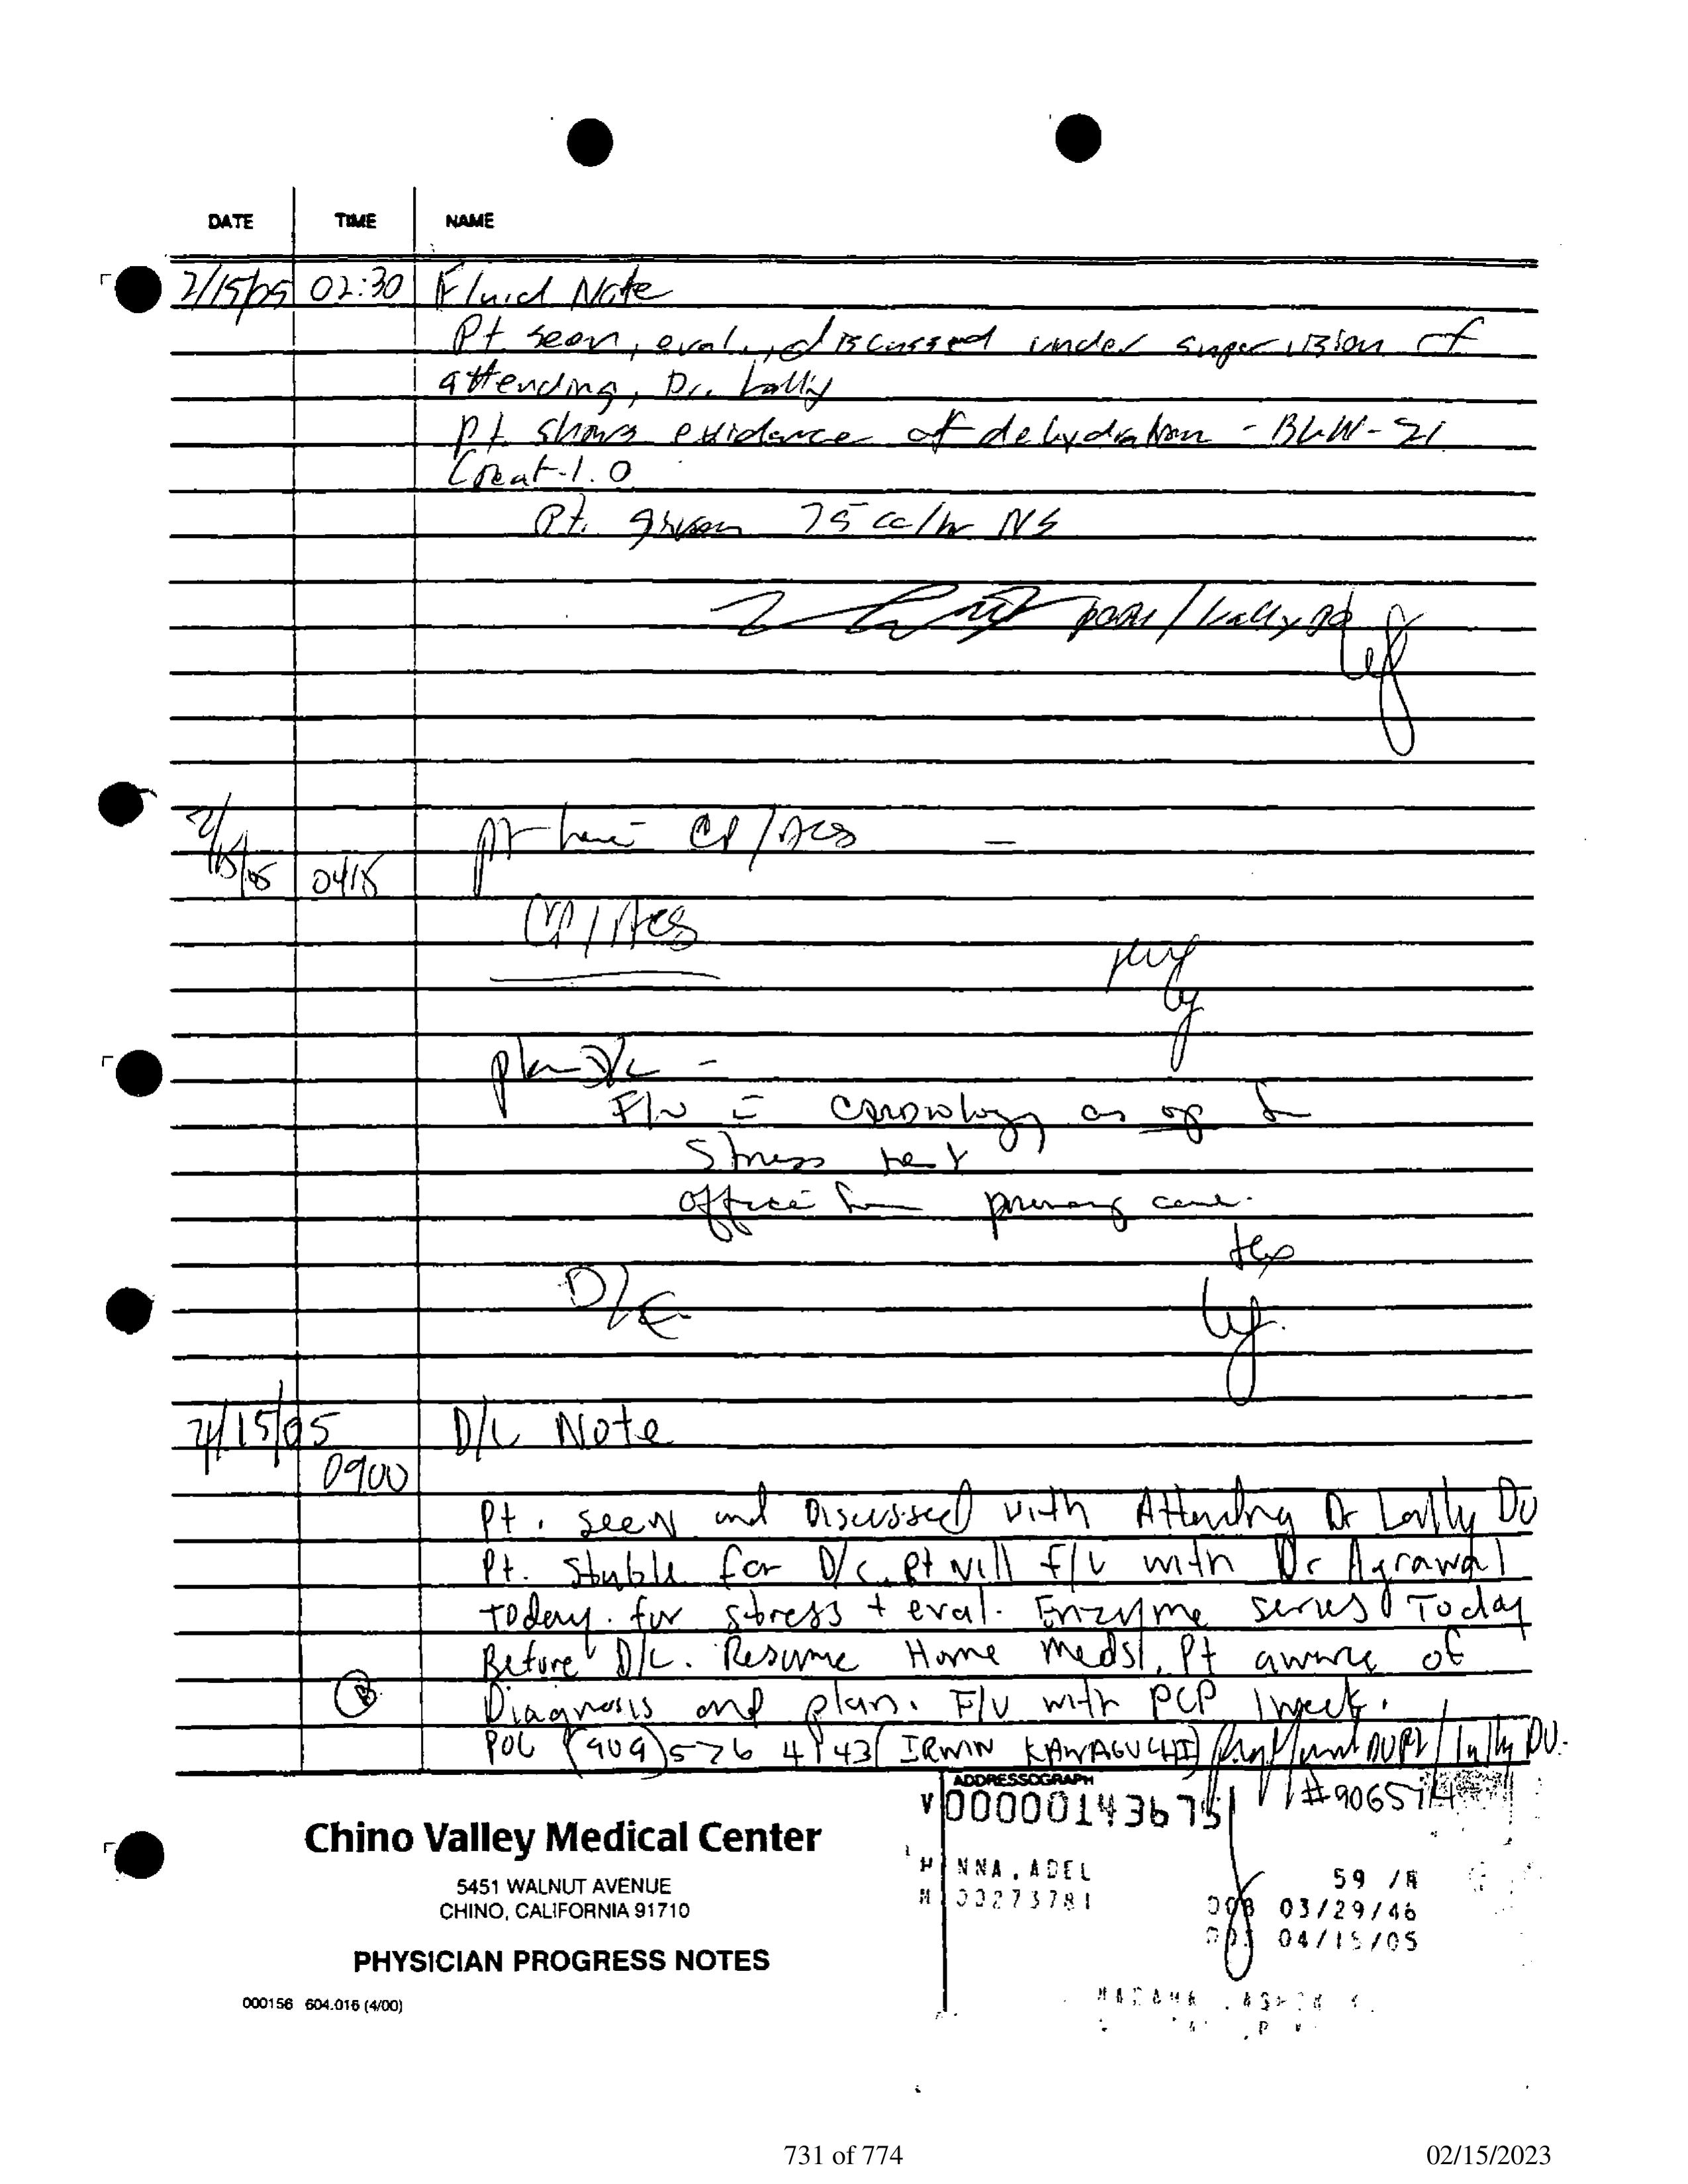 DATE TIME NAME
2/15/05 02:30 Fluid Note
Pt seen, eval., discussed under supervision of
attending, Dr. Lally
Pt shows evidence of dehydration - BUN-21
Creat-1.0
Pt. given 75 cc/hr NS
/ Lally DO
2/15/05 0415 pt have CP/ACS
CP/ACS
plan D/C -
F/u c cardiology as op for
Stress test
office for primary care.
D/C
2/15/05 D/C Note
0900
Pt. seen and Discussed with Attending Dr Lally DO
Pt. stable for D/C. Pt will F/U with Dr Agrawal
Today. for stress + eval. Enzyme series Today
Before D/C. Resume Home Meds. Pt aware of
Diagnosis and plan. F/U with PCP 1 week.
(909) 576 4143 (IRWIN KAWAGUCHI) / Lally DO.
ADDRESSOGRAPH
V00000143675
Chino Valley Medical Center
5451 WALNUT AVENUE
CHINO, CALIFORNIA 91710
PHYSICIAN PROGRESS NOTES
000156 604.016 (4/00)
HANNA, ADEL
M 00273781 59 /M
DOB 03/29/46
04/15/05
731 of 774 02/15/2023